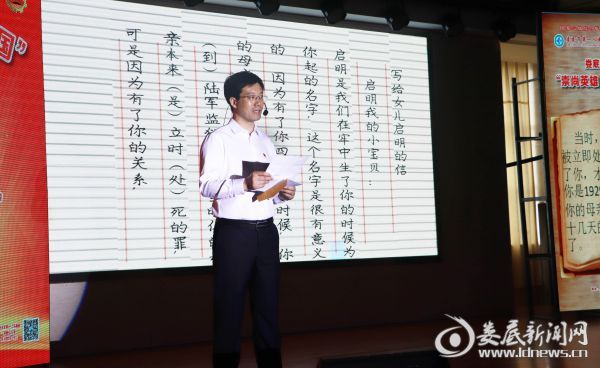 写给女儿启明的信
启明我的小宝贝：
启明是我们在牢中生了你的时候为
你起的名字，这个名字是很有意义
的 因为有了你四 时候，你
的母
（到）陆军监
亲本来（是）立时（处）死的罪，
可是因为有了你的关系，
国”
“崇尚英雄
当时，
被立即处
了你，才
你是1929
你的母亲
十几天的
了。
娄底新闻网
www.ldnews.cn